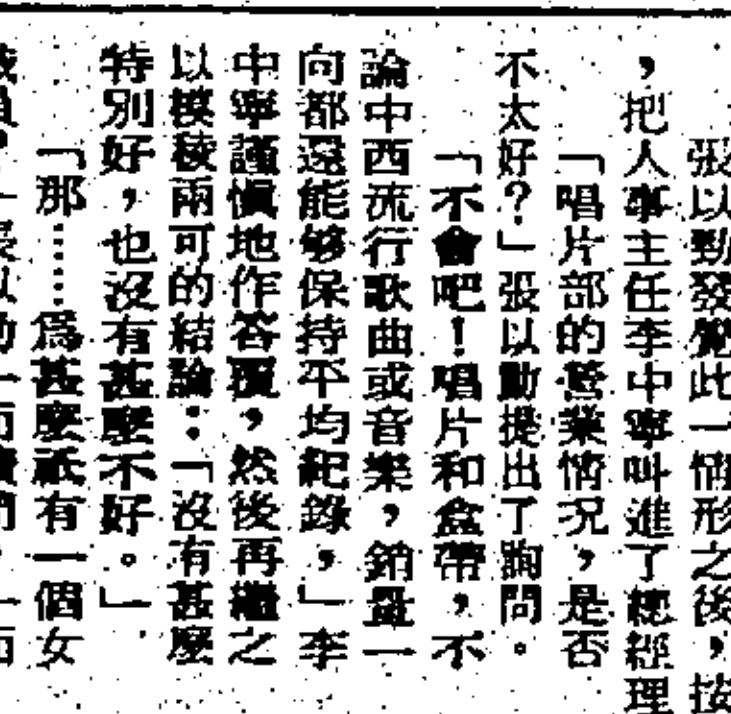 張以勁發覺此一情形之後，按
，把人事主任李中寧叫進了總經理
「唱片部的營業情況，是否
不太好？」張以勁提出了詢問。
「不會吧！唱片和盒帶，不
論中西流行歌曲或音樂，銷量一
向都還能够保持平均紀錄，」李
中寧謹慎地作答覆，然後再繼之
以模稜兩可的結論：「沒有甚麼
特別好，也沒有甚麼不好。」
「那……爲甚麼祇有一個女